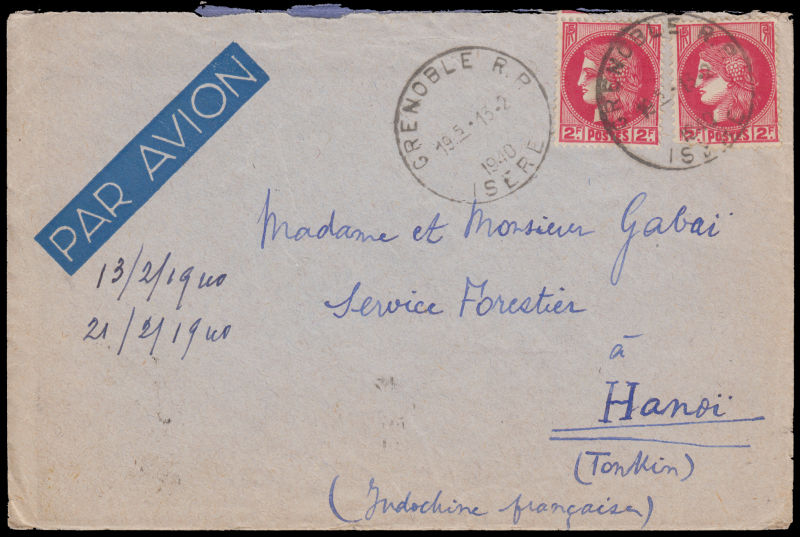 PAR AVION
GRENOBLE R.P.
19 5 - 13-2
1940
ISÈRE
2F. POSTES 2F.
GRENOBLE R.P.
ISÈRE
2F. POSTES 2F.
Madame et Monsieur Gabaï
Service Forestier
à
Hanoï
(Tonkin)
(Indochine française)
13/2/1940
21/2/1940